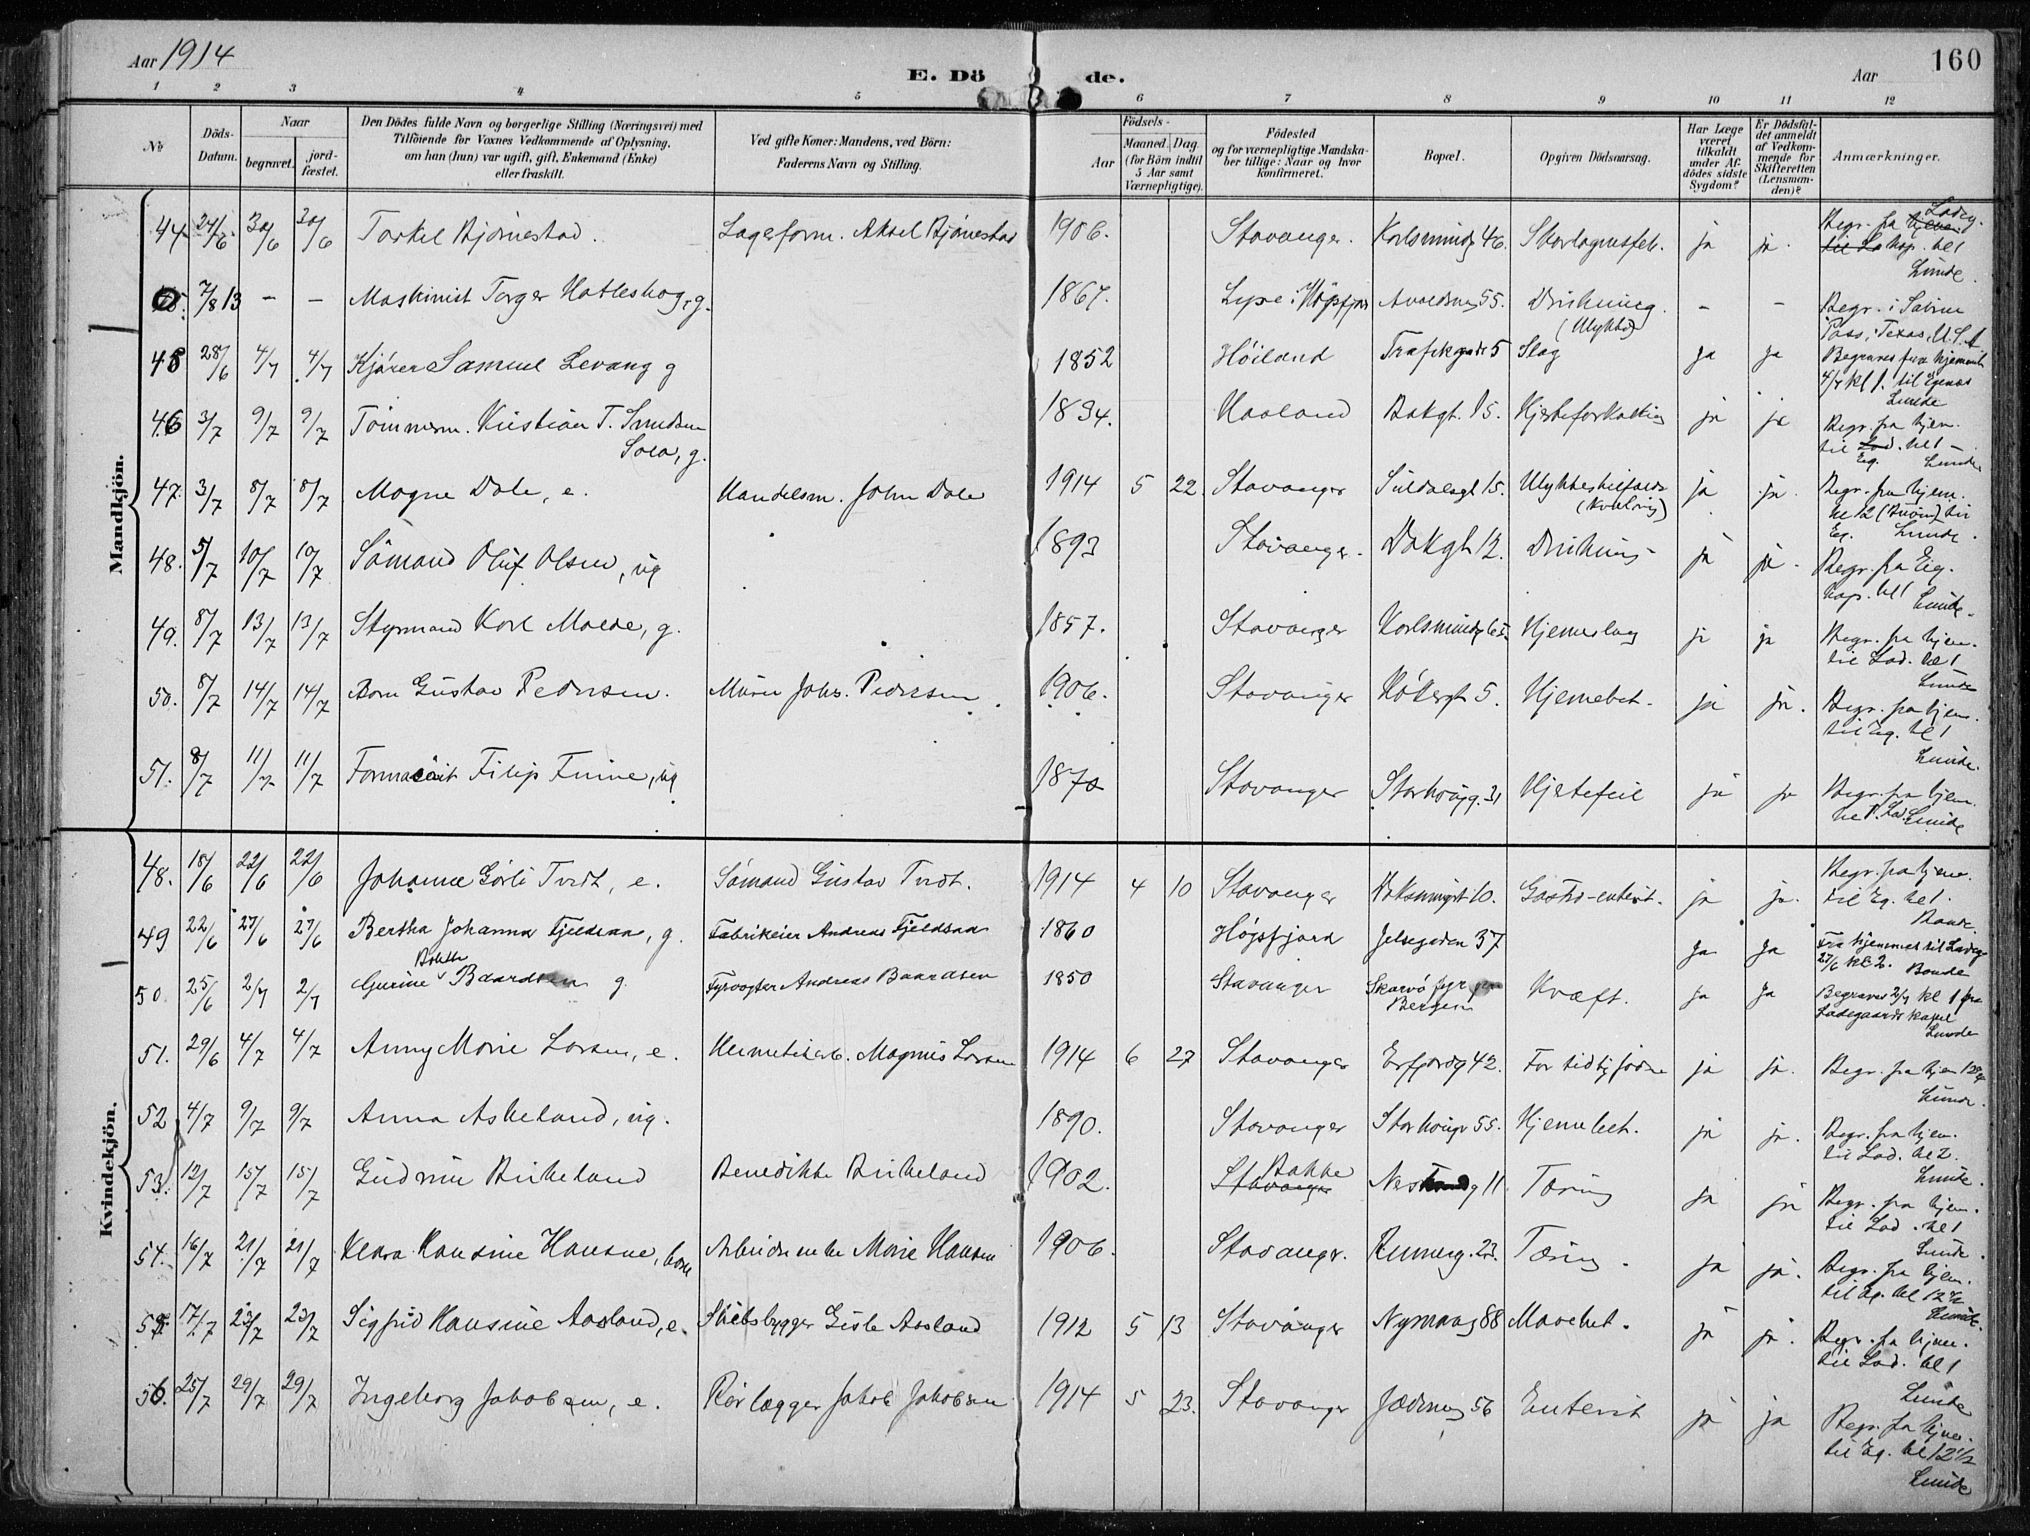 Aar 1914
E. Döde.
Aar
160
1 2 3 4 5 6 7 8 9 10 11 12
№
Döds-Datum.
Naar
begravet.
jord-fæstet.
Den Dödes fulde Navn og borgerlige Stilling (Næringsvei) med
Tilföiende for Voxnes Vedkommende af Oplysning,
om han (hun) var ugift, gift, Enkemand (Enke)
eller fraskilt.
Ved gifte Koner: Mandens, ved Börn:
Faderens Navn og Stilling.
Födsels-
Aar
Maaned. Dag.
(for Börn indtil
5 Aar samt
Værnepligtige).
Födested
og for værnepligtige Mandska-
ber tillige: Naar og hvor
konfirmeret.
Bopæl.
Opgiven Dödsaarsag.
Har Læge
været
tilkaldt
under Af-
dödes sidste
Sygdom?
Er Dödsfal-
det anmeldt
af Vedkom-
mende for
Skifteretten
(Lensman-
den)?
Anmærkninger.
Mandkjön.
44 24/6 30/6 30/6 Torkel Bjørnestad. Lagerform. Aksel Bjørnestad 1906. Stavanger. Karlsmindeg 46. Skarlagensfeb. ja ja. Begr. fra Ladeg. kap. kl 1 Lunde.
7/8 13 – – Maskinist Torger Hatleskog, g. 1867. Lyse i Høgsfjord Avaldsnesg 55. Drukning. (Ulykke) – – Begr. i Sabine Pass, Texas, U.S.A
45 28/6 4/7 4/7 Kjører Samuel Levang g 1852 Høiland Trafikgade 5 Slag ja ja Begraves fra hjemmet 4/7 kl 1. til Egenæs Lunde
46 3/7 9/7 9/7 Tømmerm. Kristian T. Knudsen Sola, g. 1834. Haaland Bakgt. 15. Hjerteforkalkning ja ja Begr. fra hjem. til Eg. kl 1 – Lunde
47. 3/7 8/7 8/7 Magne Dale, e. Handelsm. John Dale 1914 5 22. Stavanger Suldalsgt 15. Ulykkestilfælde (Kvælning) ja ja. Begr. fra hjem. kl 12 til Eg. Lunde.
48. 5/7 10/7 10/7 Sømand Oluf Olsen, ug 1893 Stavanger. Bakgt 12. Drukning – ja ja. Begr. fra Eig. kap. kl 1 Lunde.
49. 8/7 13/7 13/7 Styrmand Karl Malde, g. 1857. Stavanger Karlsmindeg 65. Hjerneslag ja ja Begr. fra hjem. til Lad. kl 1 – Lunde
50. 8/7 14/7 14/7 Barn Gustav Pedersen. Murer Johs. Pedersen. 1906. Stavanger Kokergt 5. Hjernebet. ja ja. Begr. fra hjem. til Eg. kl 1 Lunde.
51. 8/7 11/7 11/7 Farmaceut Filip Finne, ug 1870 Stavanger Storhougg. 31 Hjertefeil ja ja Begr. fra hjem. kl 1. Lad. Lunde
Kvindekjön.
48. 18/6 22/6 22/6 Johanne Görli Tvedt, e. Sömand Gustav Tvedt. 1914 4 10 Stavanger 10. Gastro-enterit. ja ja. Begr. fra hjem. til Eg. kl 1. Bonde.
49 22/6 27/6 27/6 Bertha Johanna Fjeldsaa, g. Fabrikeier Andreas Fjeldsaa 1860 Høgsfjord Jelsegaden 37 ja ja Fra hjemmet til Ladeg 27/6 kl 2. Bonde
50. 25/6 2/7 2/7 Gurine Bolette Baardsen g. Fyrvogter Andreas Baardsen 1850 Stavanger Skarvø fyr Bergen Kræft. ja ja Begraves 2/7 kl 1 fra Ladegaards kapel Lunde
51. 29/6 4/7 4/7 Anny Marie Larsen, e. Hermetikarb. Magnus Larsen 1914 6 27 Stavanger Erfjordg 42. For tidlig födsel ja ja. Begr. fra hjem Lunde.
52 4/7 9/7 9/7 Anna Askeland, ug. 1890. Stavanger Storhougv 55. Hjernebet. ja ja. Begr. fra hjem. til Lad. kl 2. Lunde.
53. 12/7 15/7 15/7 Gudrun Birkeland Benedikte Birkeland 1902. Bakke Stavanger Nestrandg 11 Tæring ja ja Begr. fra hjem. til Lad. kl 1 Lunde.
54. 16/7 21/7 21/7 Klara Hansine Hansen, barn Arbeiderenke Marie Hansen 1906. Stavanger. Rennesg. 23. Tæring. ja ja. Begr. fra hjem. til Eg. kl 12½ Lunde.
55. 17/7 23/7 23/7 Sigfrid Hansine Aasland, e. Skibsbygger Gisle Aasland 1912 5 13 Stavanger Nymansg 88 Mavebet. ja ja. Begr. fra hjem. til Lad. kl 1 Lunde
56. 25/7 29/7 29/7 Ingeborg Jakobsen, e. Rörlægger Jakob Jakobsen 1914 5 23. Stavanger Jæderveg 56 Enterit ja ja Begr. fra hjem. til Eg. kl 12½ Lunde